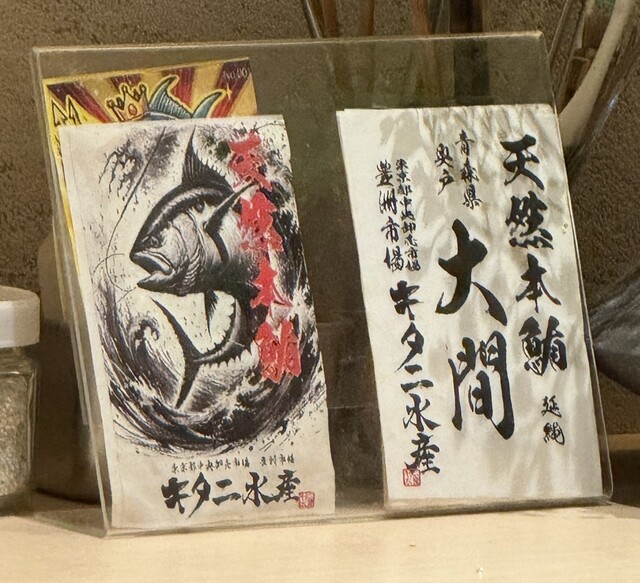 No.00
天然本鮪
東京都中央卸売市場 豊洲市場
キタニ水産
天然本鮪 延縄
大間
青森県
奥戸
東京都中央卸売市場
豊洲市場
キタニ水産